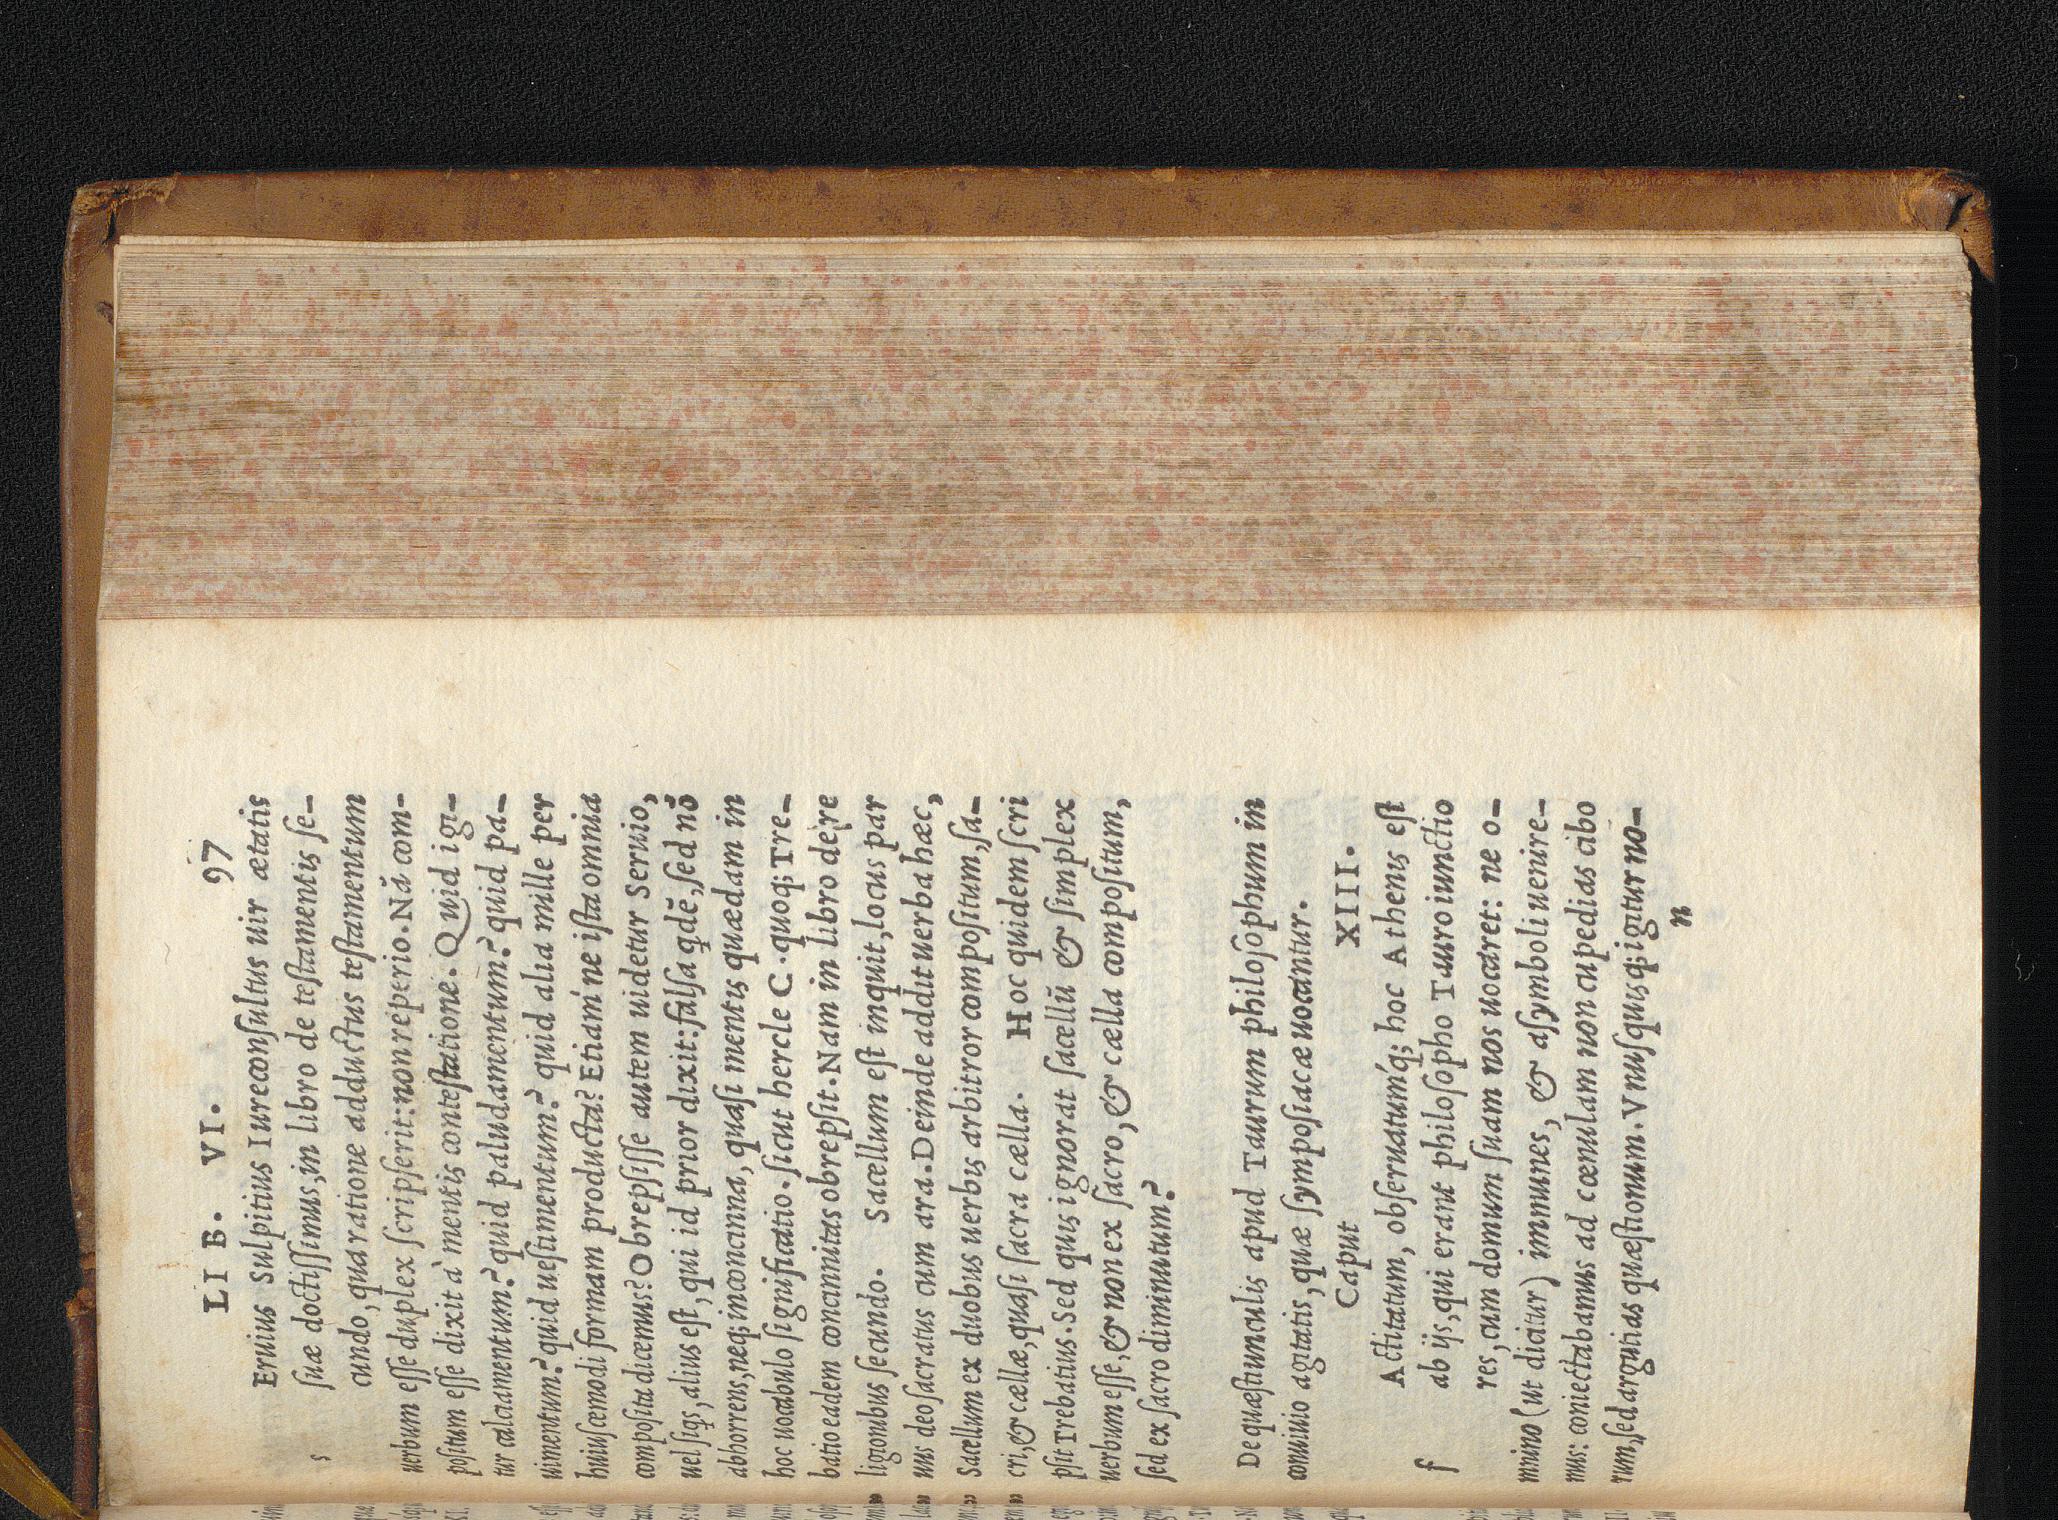 LIB. VI. 97
s Eruius Sulpitius Iureconſultus uir ætatis
ſuæ doctiſſimus, in libro de teſtamentis ſe-
cundo, qua ratione adductus teſtamentum
uerbum eſſe duplex ſcripſerit: non reperio. Nã com-
poſitum eſſe dixit à mentis conteſtatione. Quid igi-
tur calciamentum? quid paludamentum? quid pa-
uimentum? quid ueſtimentum? quid alia mille per
huiuſcemodi formam producta? Etiam'ne iſta omnia
compoſita dicemus? Obrepſiſſe autem uidetur Seruio,
uel ſiqs, alius eſt, qui id prior dixit: falſa qdẽ, ſed nõ
abhorrens, neq; inconcinna, quaſi mentis quædam in
hoc uocabulo ſignificatio. ſicut hercle C. quoq; Tre-
batio eadem concinnitas obrepſit. Nam in libro de re
ligionibus ſecundo. Sacellum eſt inquit, locus par
uus deo ſacratus cum ara. Deinde addit uerba hæc,
Sacellum ex duobus uerbis arbitror compoſitum, ſa-
cri, & cellæ, quaſi ſacra cella. Hoc quidem ſcri
pſit Trebatius. Sed quis ignorat ſacellũ & ſimplex
uerbum eſſe, & non ex ſacro, & cella compoſitum,
ſed ex ſacro diminutum?
De quæſtiunculis apud Taurum philoſophum in
conuiuio agitatis, quæ ſympoſiacæ uocantur.
Caput XIII.
f Actitatum, obſeruatumq́; hoc Athenis eſt
ab ijs, qui erant philoſopho Tauro iunctio
res, cum domum ſuam nos uocaret: ne o-
mnino (ut dicitur) immunes, & aſymboli uenire-
mus: coniectabamus ad cœnulam non cupedias cibo
rum, ſed argutias quæſtionum. Vnuſquiſq; igitur no-
n